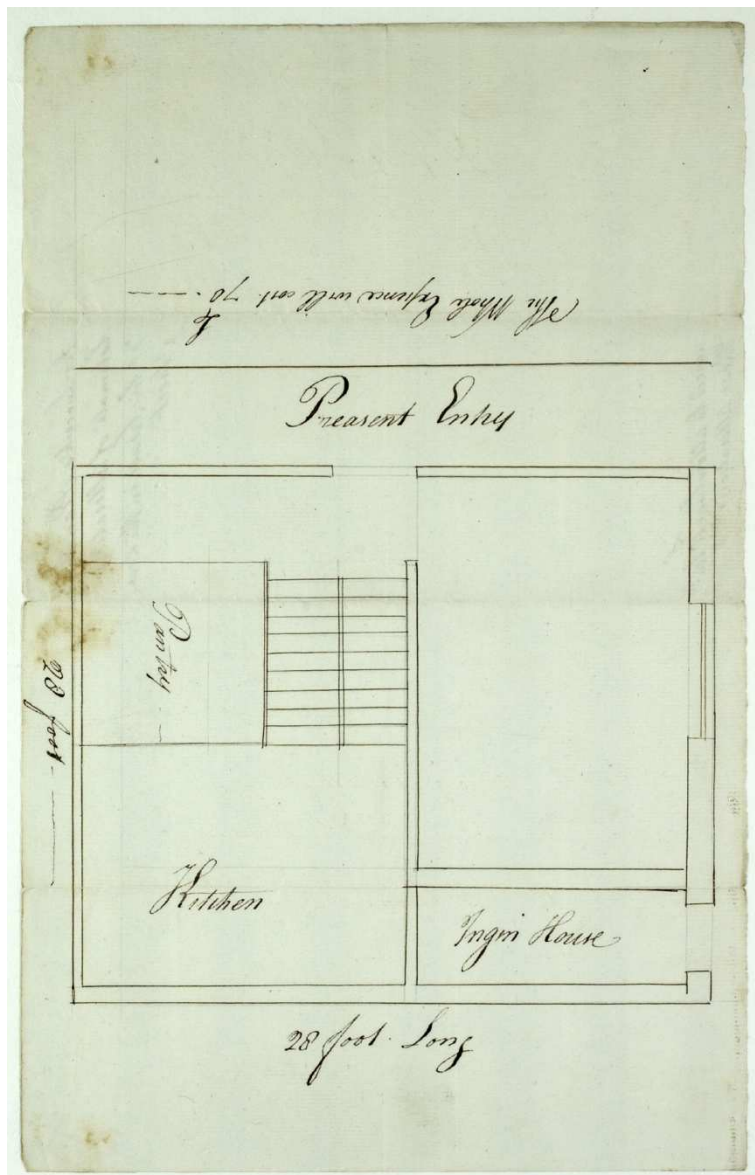 The Whole Expence will cost £70
Preasent Entry
Pantry
28 foot
Kitchen
Ingin House
28 foot Long